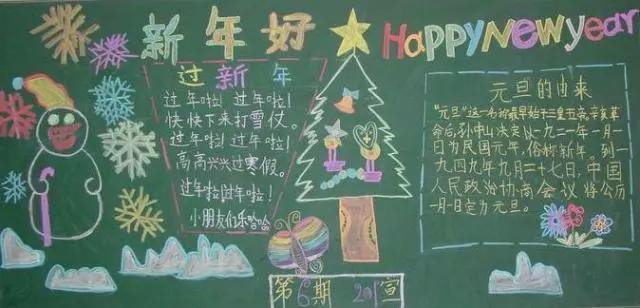 新年好
HAPPY New year
过新年
过年啦！过年啦！
快快下来打雪仗。
过年啦！过年啦！
高高兴兴过寒假。
过年啦过年啦！
小朋友们乐哈哈
元旦的由来
"元旦"这一名称最早始于三皇五帝，辛亥革
命后，孙中山决定以一九二一年一月一
日为民国元年，俗称新年，到一
九四九年九月二十七日，中国
人民政治协商会议将公历
一月一日定为元旦。
第6期 201宣